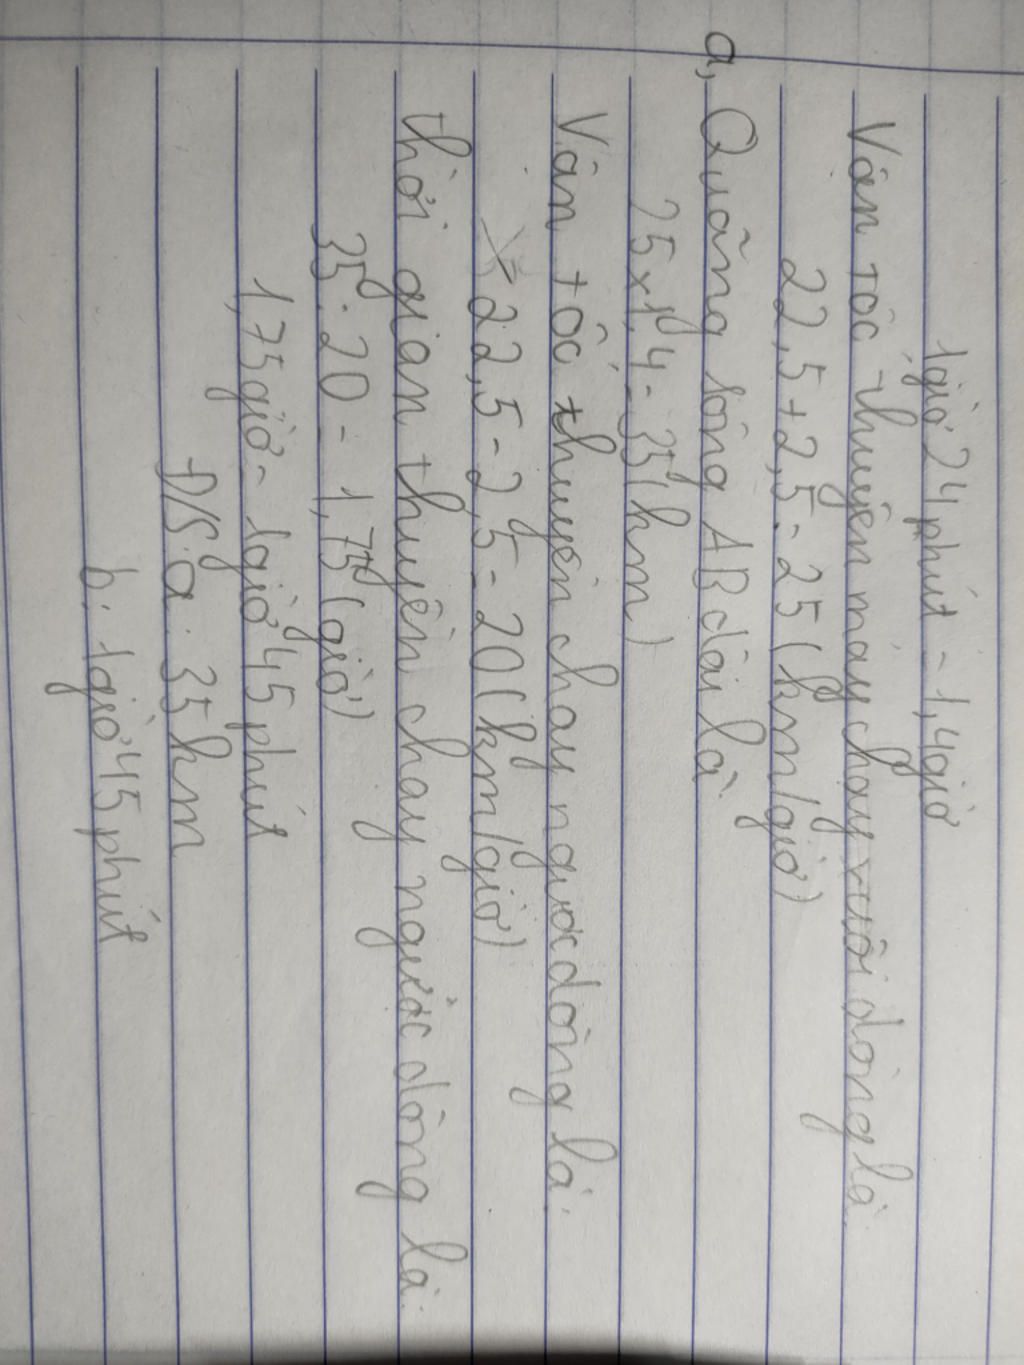 1giờ 24 phút = 1,4giờ
Vận tốc thuyền máy chạy xuôi dòng là
22,5+2,5=25(km/giờ)
a, Quãng sông AB dài là
25x1,4=35(km)
Vận tốc thuyền chạy ngược dòng là:
22,5-2,5=20(km/giờ)
thời gian thuyền chạy ngược dòng là:
35:20=1,75(giờ)
1,75giờ=1giờ45phút
Đ/S: a: 35km
b: 1giờ45phút